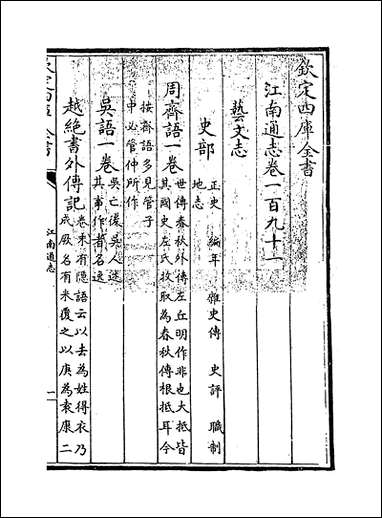 欽定四庫全書
江南通志卷一百九十一
藝文志
史部
正史 編年 雜史傳 史評 職制
地志
周齊語一卷
世傳春秋外傳左丘明作非也大抵皆
其國史左氏採取為春秋傳根抵耳今
按齊語多見管子
中必管仲所作
吳語一卷
吳亡後吳人述
其事作者名逸
越絕書外傳記
卷末有隠語云以去為姓得衣乃
成厥名有米覆之以庚為袁康二
江南通志
一